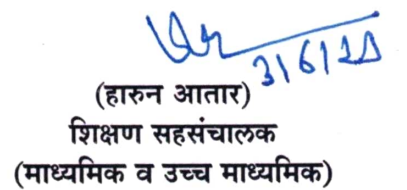 3/6/25
(हारुन आतार)
शिक्षण सहसंचालक
(माध्यमिक व उच्च माध्यमिक)